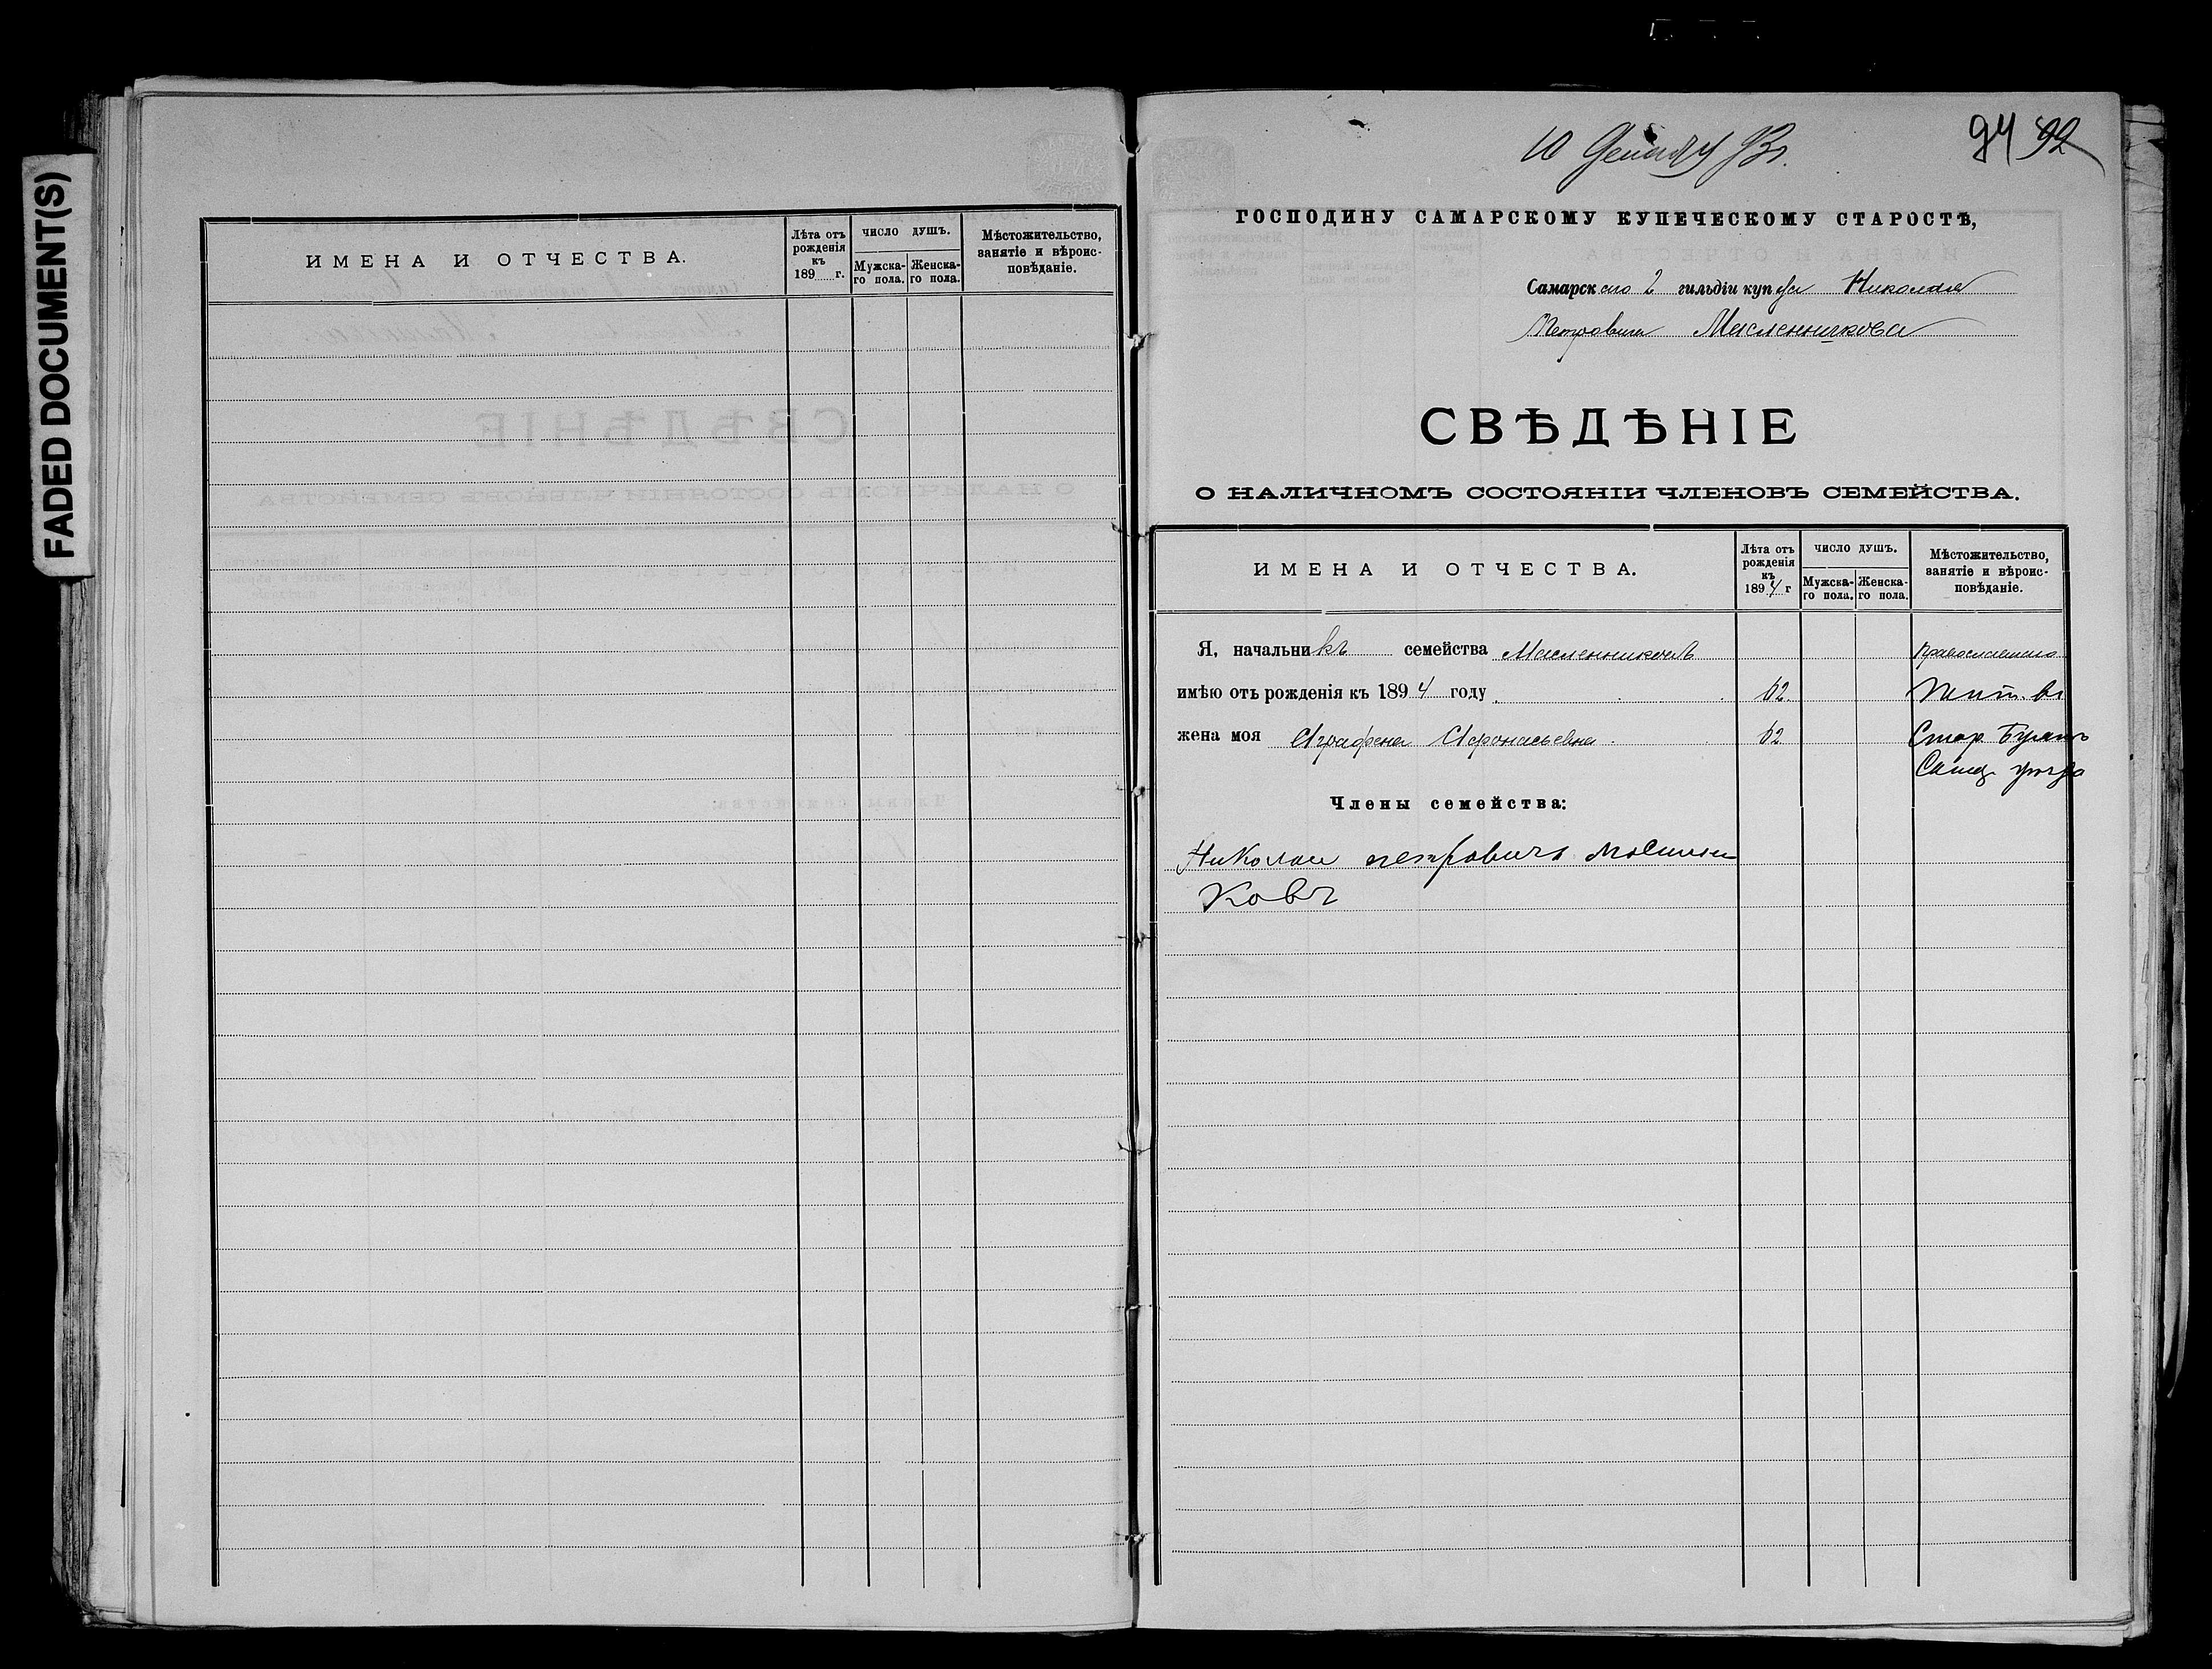 FADED DOCUMENT(S)
ИМЕНА И ОТЧЕСТВА.
Лѣта отъ
рожденія
къ
189 г.
ЧИСЛО ДУШЪ.
Мужска-
го пола.
Женска-
го пола.
Мѣстожительство,
занятіе и вѣроис-
повѣданіе.
94 92
10 Декабря 93 г.
ГОСПОДИНУ САМАРСКОМУ КУПЕЧЕСКОМУ СТАРОСТѢ,
Самарскаго 2 гильдіи купца Николая
Петровича Масленникова
СВѢДѢНІЕ
О НАЛИЧНОМЪ СОСТОЯНІИ ЧЛЕНОВЪ СЕМЕЙСТВА.
ИМЕНА И ОТЧЕСТВА.
Лѣта отъ
рожденія
къ
1894 г
ЧИСЛО ДУШЪ.
Мужска-
го пола.
Женска-
го пола.
Мѣстожительство,
занятіе и вѣроис-
повѣданіе.
Я, начальникъ семейства Масленниковъ
Православнаго
имѣю отъ рожденія къ 1894 году 62
Жит. въ
жена моя Аграфена Афонасьевна 62
Стар. Буянъ
Самар. уѣзда
Члены семейства:
Николаи петровичъ
Ковъ